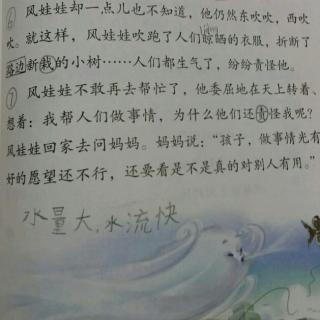 ⑥ 风娃娃却一点儿也不知道，他仍然东吹吹，西吹
吹。就这样，风娃娃吹跑了人们晾晒的衣服，折断了
路边新栽的小树……人们都生气了，纷纷责怪他。
⑦ 风娃娃不敢再去帮忙了，他委屈地在天上转着、
想着：我帮人们做事情，为什么他们还责怪我呢？
风娃娃回家去问妈妈。妈妈说：“孩子，做事情光有
好的愿望还不行，还要看是不是真的对别人有用。”
水量大，水流快